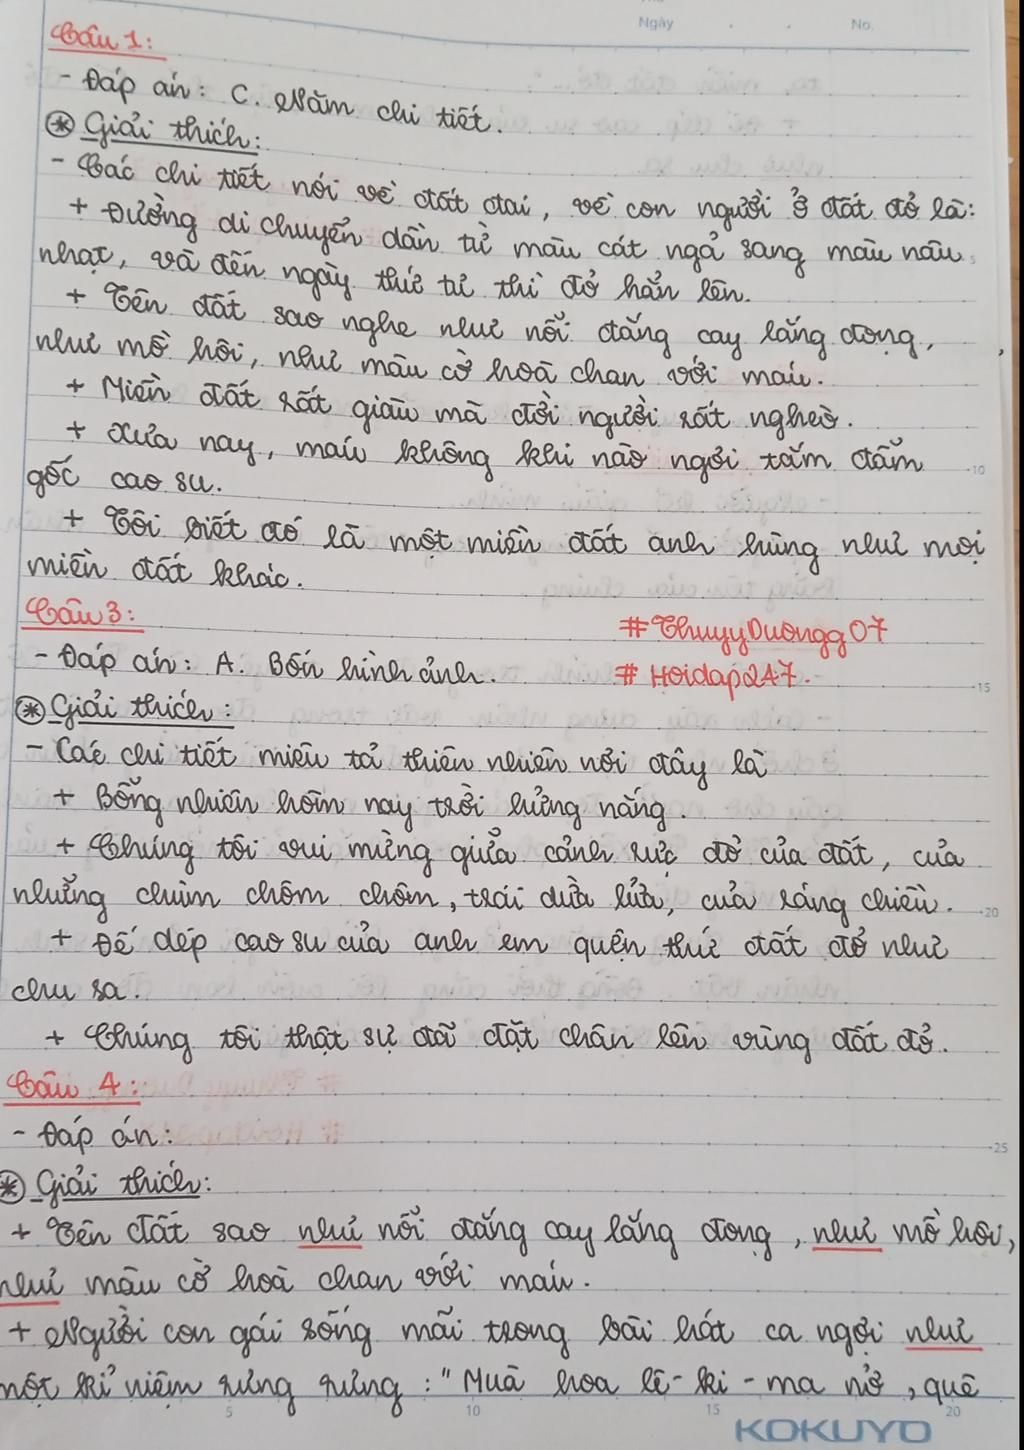 Ngày . . No.
Câu 1:
- Đáp án: C. Năm chi tiết.
* Giải thích:
- Các chi tiết nói về đất đai, về con người ở đất đỏ là:
+ Đường di chuyển dần từ màu cát ngả sang màu nâu
nhạt, và đến ngày thứ tư thì đỏ hẳn lên.
+ Tên đất sao nghe như nỗi đắng cay lắng đọng,
như mồ hôi, như màu cờ hoà chan với máu.
+ Miền đất rất giàu mà đời người rất nghèo.
+ Xưa nay, máu không khi nào ngơi tắm đẫm
gốc cao su.
+ Tôi biết đó là một miền đất anh hùng như mọi
miền đất khác.
Câu 3:
#ThuyyDuongg07
- Đáp án: A. Bốn hình ảnh.
#Hoidap247.
* Giải thích:
- Các chi tiết miêu tả thiên nhiên nơi đây là
+ Bỗng nhiên hôm nay trời hửng nắng.
+ Chúng tôi vui mừng giữa cảnh rực đỏ của đất, của
những chùm chôm chôm, trái dừa lửa, của ráng chiều.
+ Đế dép cao su của anh em quện thứ đất đỏ như
chu sa.
+ Chúng tôi thật sự đã đặt chân lên vùng đất đỏ.
Câu 4:
- Đáp án:
* Giải thích:
+ Tên đất sao như nỗi đắng cay lắng đọng, như mồ hôi,
như màu cờ hoà chan với máu.
+ Người con gái sống mãi trong bài hát ca ngợi như
một kỉ niệm rưng rưng: "Mùa hoa lê-ki-ma nở, quê
5 10 15 20
KOKUYO